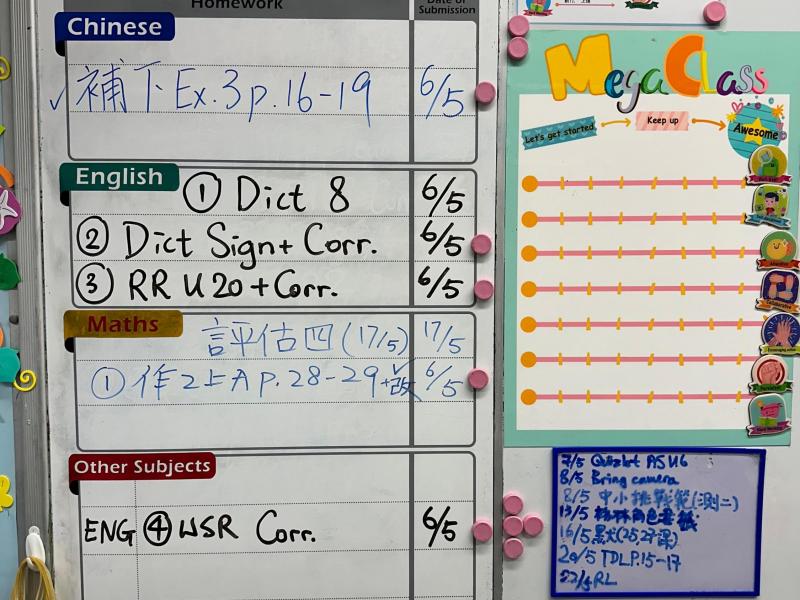 Homework
Date of Submission
Chinese
補下Ex.3 p.16-19 6/5
English
① Dict 8 6/5
② Dict Sign + Corr. 6/5
③ RR U20 + Corr. 6/5
Maths
評估四(17/5) 17/5
① 作2上A p.28-29+改 6/5
Other Subjects
ENG ④ WSR Corr. 6/5
Mega Class
Let's get started
Keep up
Awesome
7/5 Quizlet AS U6
8/5 Bring camera
8/5 中小挑戰範(測二)
13/5
16/5 默(25,27課)
20/5 TDL P.15-17
22/5 RL